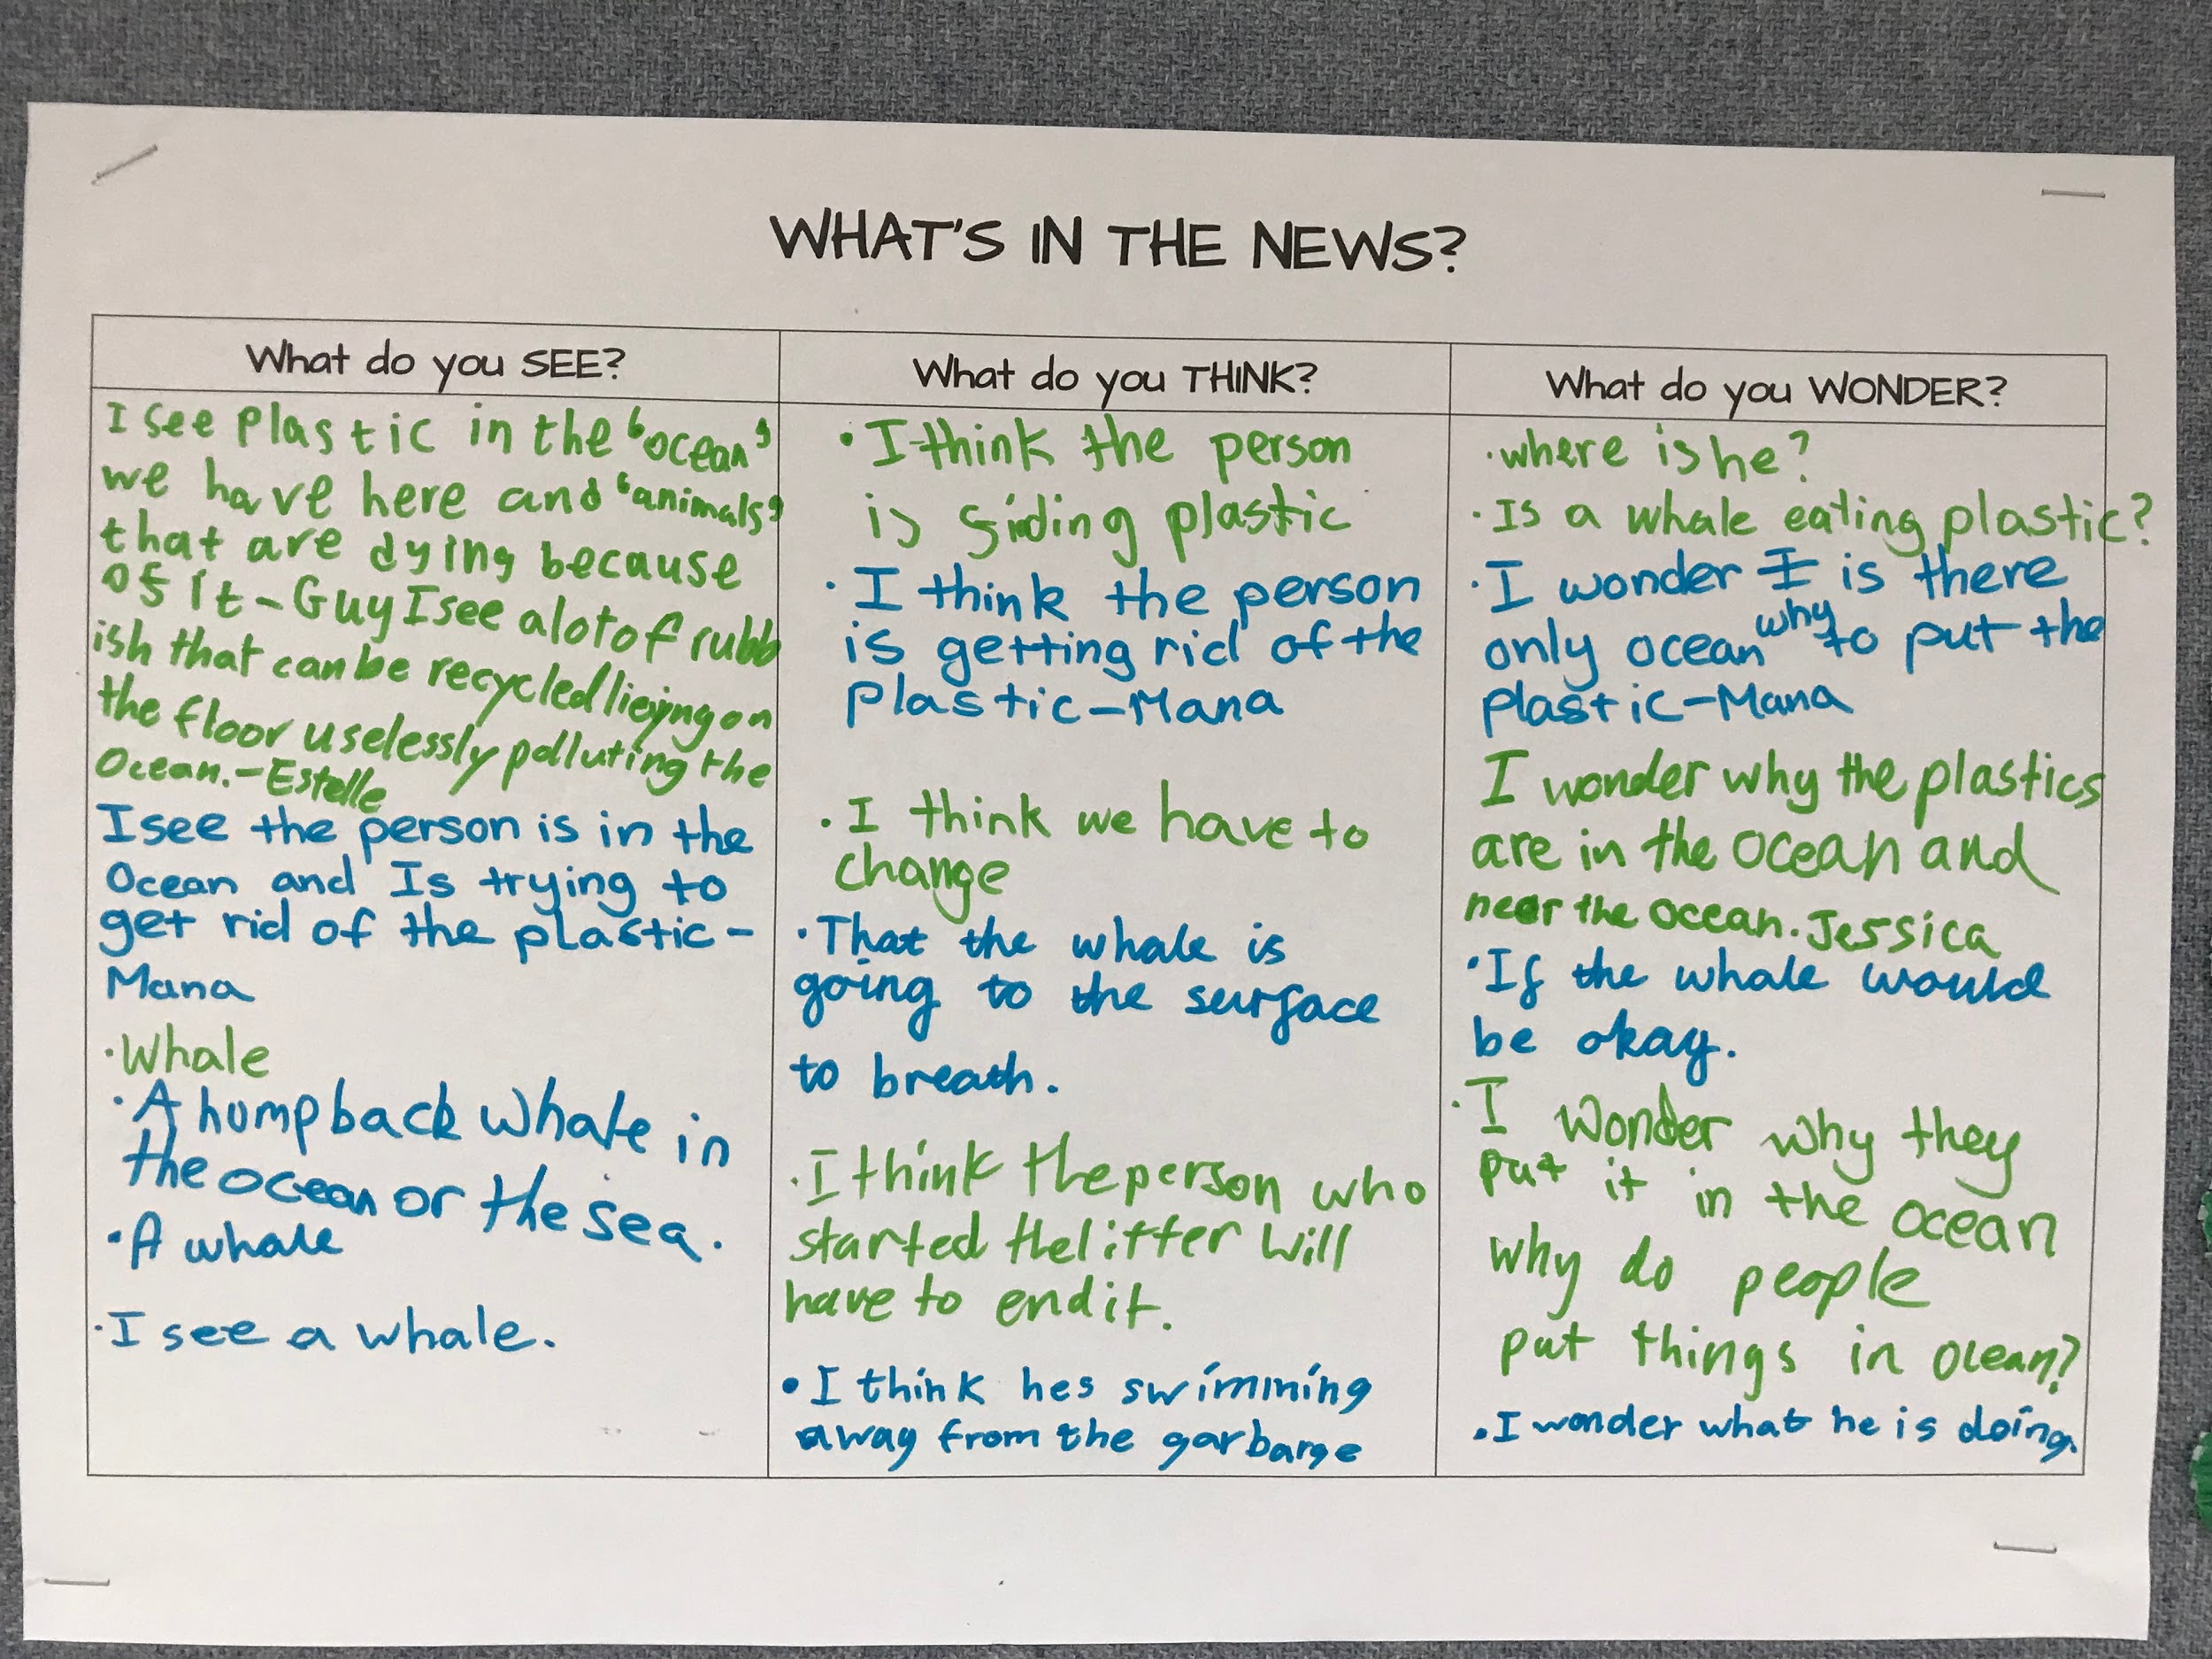 WHAT'S IN THE NEWS?
What do you SEE?
I see plastic in the 'ocean'
we have here and 'animals'
that are dying because
of it - Guy I see a lot of rubb
ish that can be recycled lieying on
the floor uselessly polluting the
Ocean. - Estelle
I see the person is in the
Ocean and Is trying to
get rid of the plastic -
Mana
· Whale
· A humpback whale in
the ocean or the sea.
· A whale
· I see a whale.
What do you THINK?
· I think the person
is finding plastic
· I think the person
is getting rid of the
plastic - Mana
· I think we have to
change
· That the whale is
going to the surface
to breath.
· I think the person who
started the litter will
have to end it.
· I think hes swimming
away from the garbarge
What do you WONDER?
· where is he?
· Is a whale eating plastic?
· I wonder I is there
only ocean why to put the
plastic - Mana
I wonder why the plastics
are in the ocean and
near the ocean. Jessica
· If the whale would
be okay.
· I wonder why they
put it in the ocean
why do people
put things in ocean?
· I wonder what he is doing.